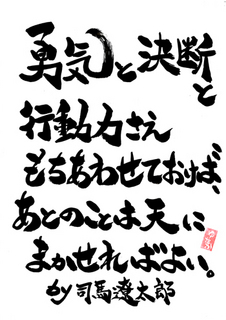 勇気と決断と
行動力さえ
もちあわせておけば、
あとのことは天に
まかせればよい。
by 司馬遼太郎